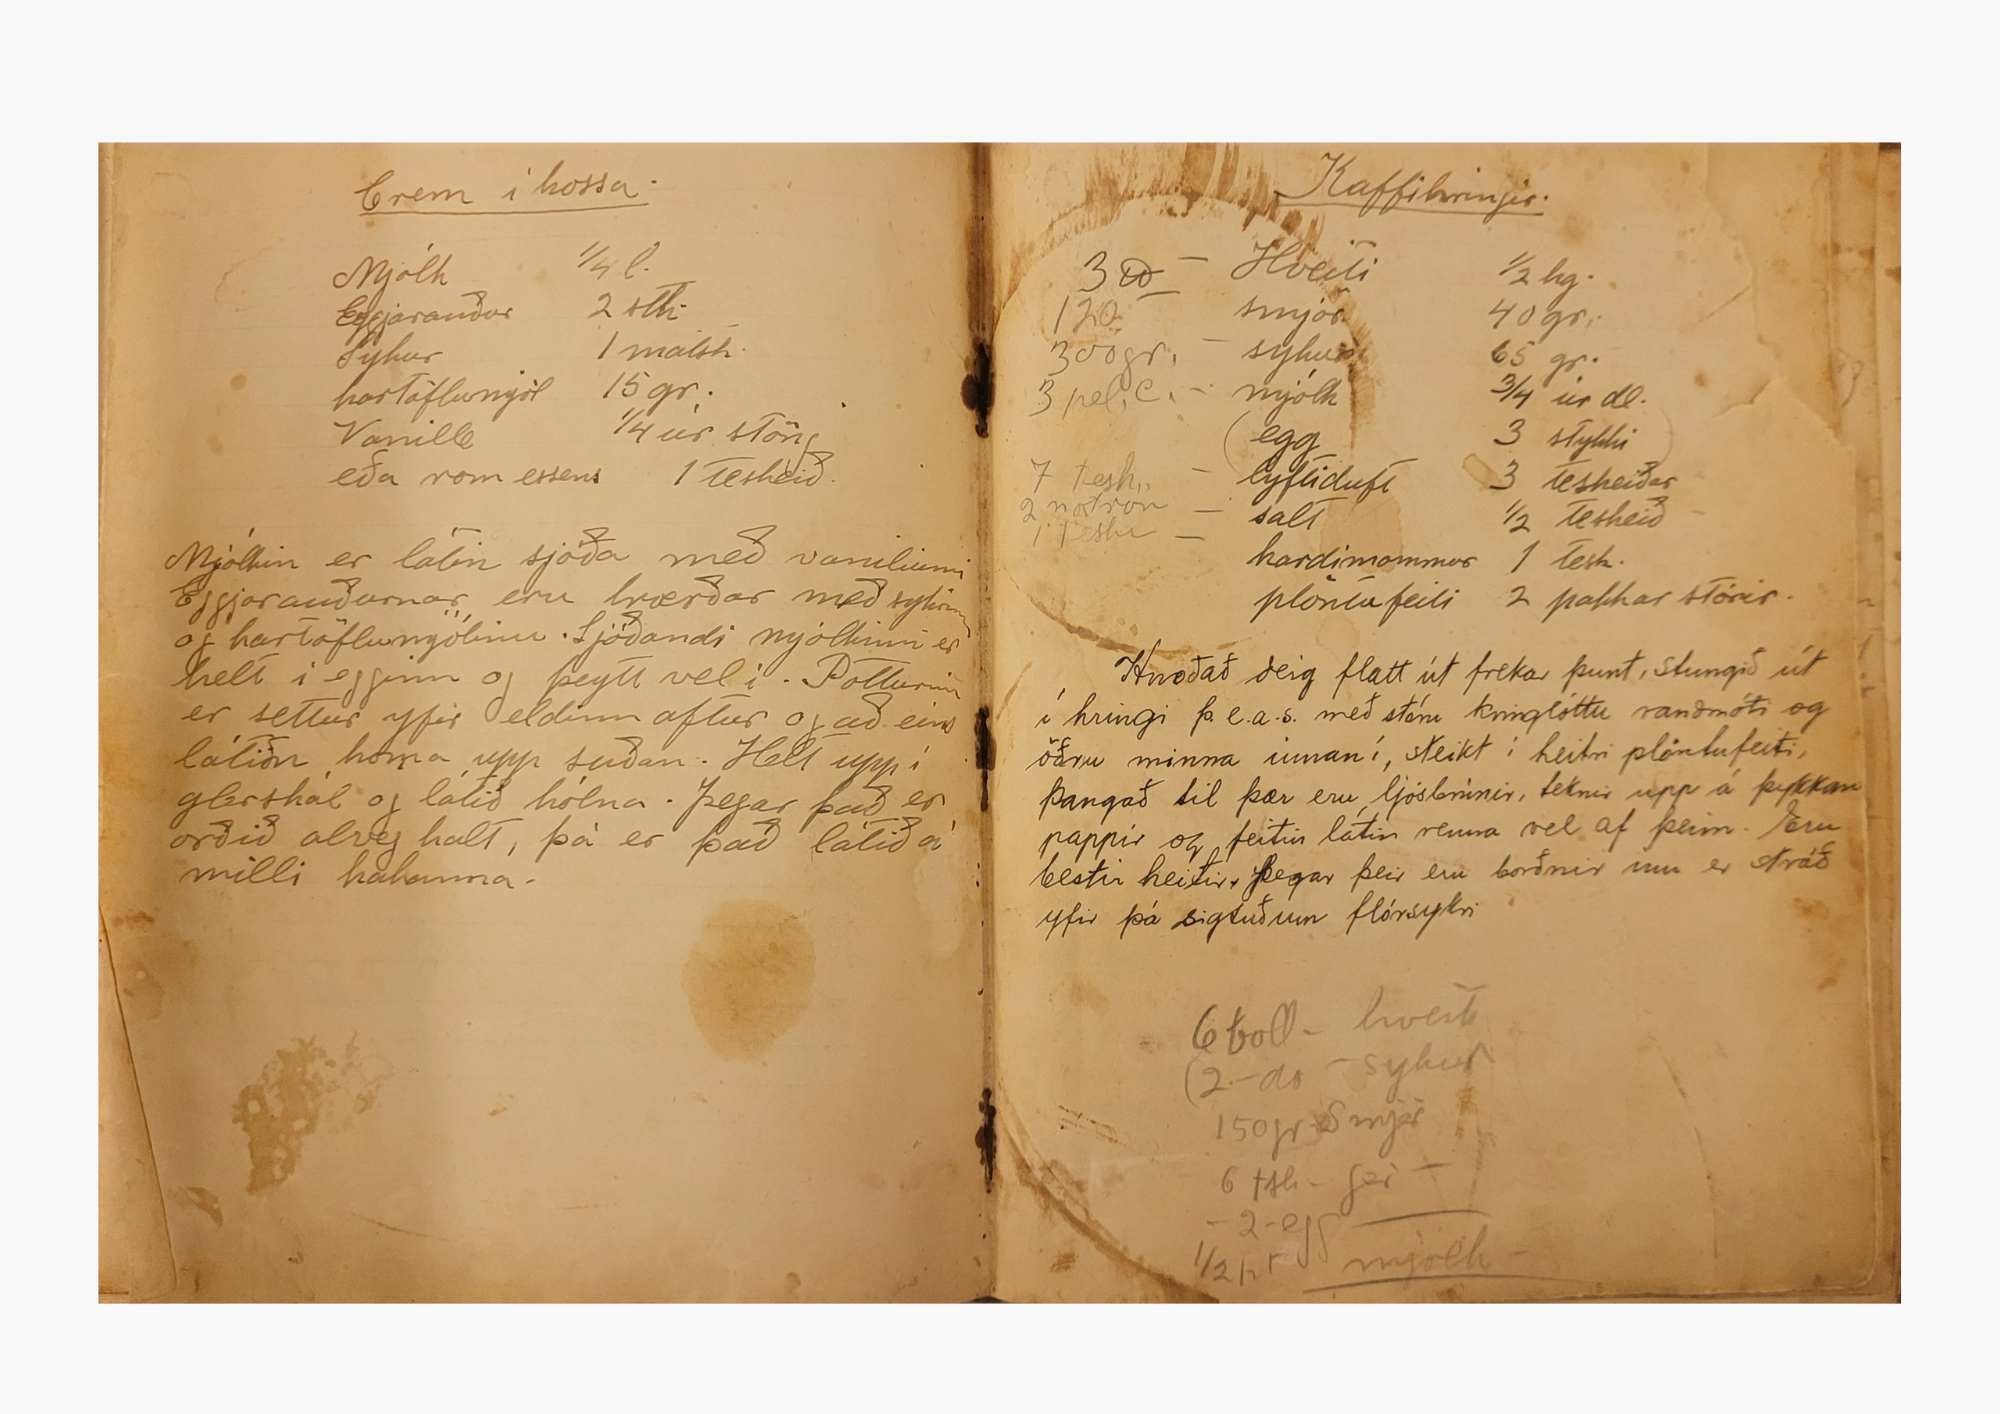 Crem í kossa.
Mjólk 1/4 l.
Eggjarauður 2 stk.
Sykur 1 matsk.
kartöflumjöl 15 gr.
Vanille 1/4 úr stöng
eða rom essens 1 teskeið.
Mjólkin er látin sjóða með vaniliunni
Eggjarauðurnar eru hrærðar með sykrinu
og kartöflumjölinu. Sjóðandi mjólkinni er
helt í eggin og þeytt vel í. Potturinn
er settur yfir eldinn aftur og að eins
látinn koma upp suðan. Helt upp í
glerskál og látið kólna. Þegar það er
orðið alveg kalt, þá er það látið á
milli kakanna.
Kaffihringir.
3 — Hveiti 1/2 kg.
120 smjör 40 gr.
300 gr. — sykur 65 gr.
3 pel. — mjólk 3/4 úr dl.
(egg 3 stykki)
7 tesk. — lyftiduft 3 teskeiðar
2 natron — salt 1/2 teskeið
1 tesk —
kardimommur 1 tesk.
plöntufeiti 2 pakkar stórir.
Hnoðað deig flatt út frekar þunt, stungið út
í hringi þ.e.a.s. með stóru kringlóttu randmóti og
öðru minna innaní, steikt í heitri plöntufeiti,
þangað til þær eru ljósbrúnir, teknir upp á þykkan
pappír og feitin látin renna vel af þeim. Eru
bestir heitir. Þegar þeir eru bornir inn er stráð
yfir þá sigtuðum flórsykri
6 boll - hveiti
(2 - do - sykur
150 gr Smjör
6 tsk - ger -
- 2 - egg
1/2 mjólk -